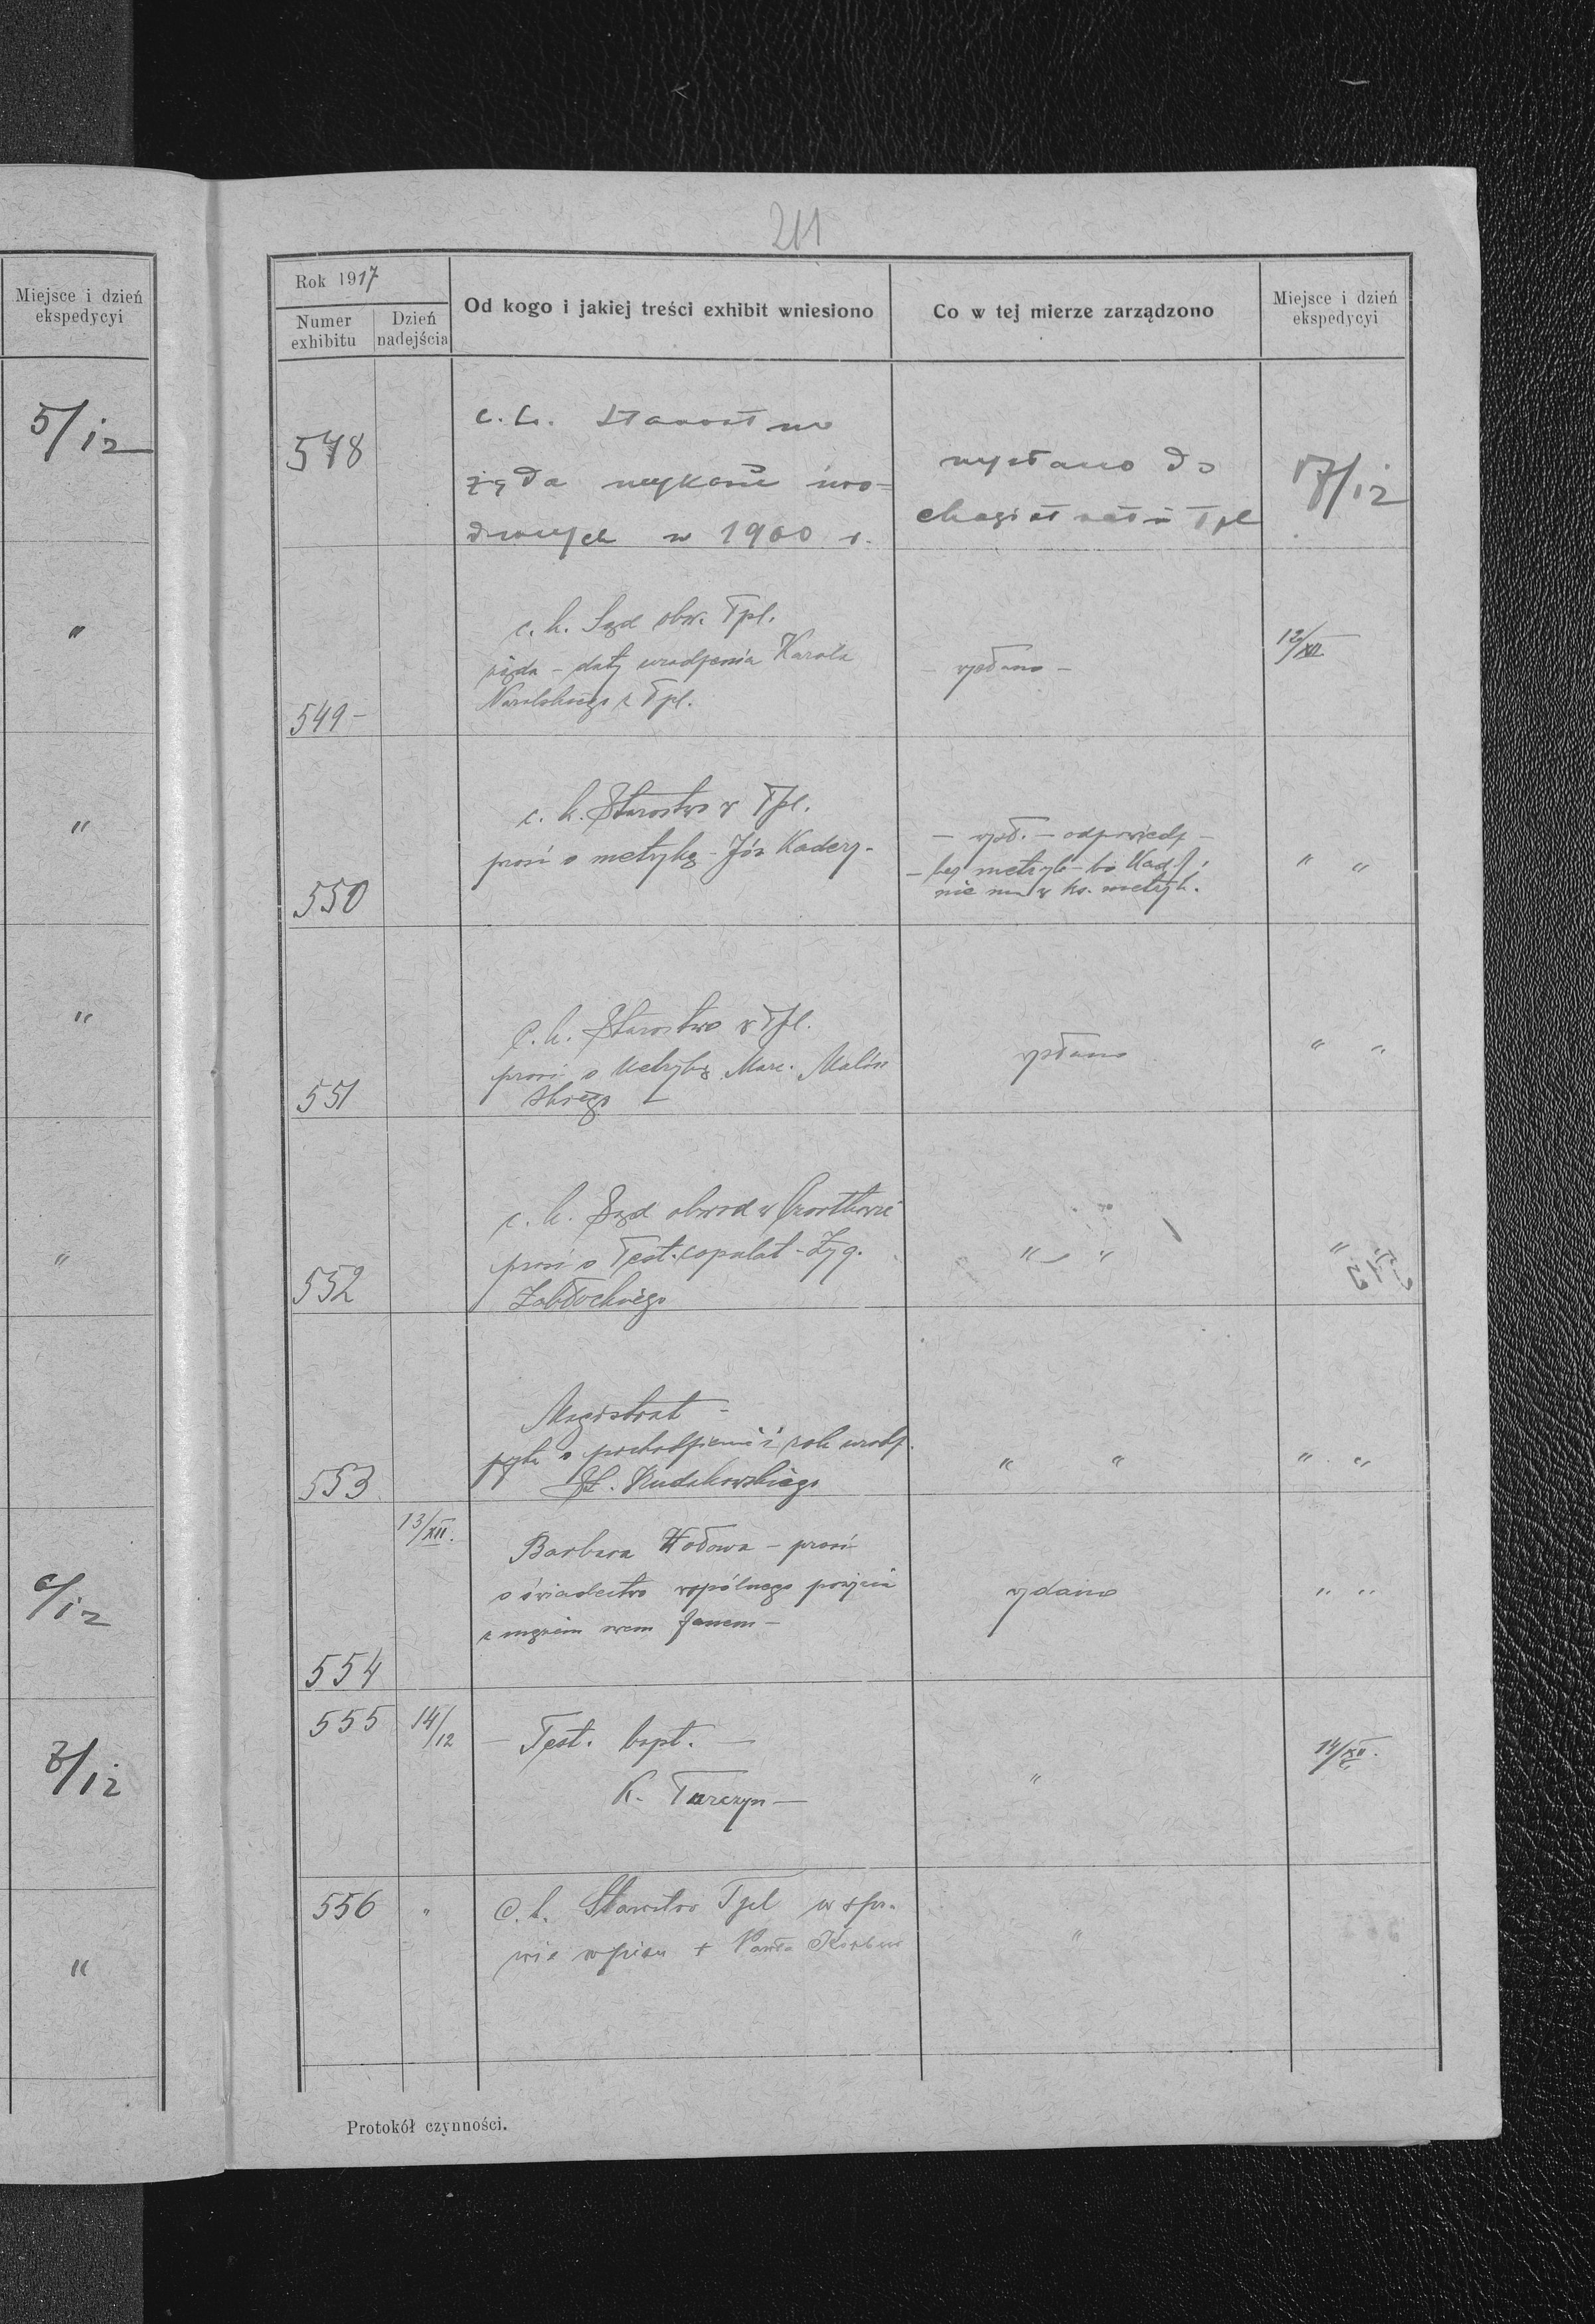 Miejsce i dzień
ekspedycyi
5/12
"
"
"
"
6/12
7/12
"
211
Rok 1917
Numer
exhibitu
Dzień
nadejścia
Od kogo i jakiej treści exhibit wniesiono
Co w tej mierze zarządzono
Miejsce i dzień
ekspedycyi
548
c. k. Starostwo
żąda wykazu uro-
dzonych w 1900 r.
wysłano do
Magistratu Tpl
7/12
549-
c. k. Sąd obw. Tpl.
żąda - daty urodzenia Karola
z Tpl.
- wysłano -
12/XII
550
c. k. Starostwo w Tpl.
prosi o metrykę - Józ Kadery-
- wysł. - odpowiedz -
- bez metryk - bo Kad.
nie ma w ks. metryk.
" "
551
c. k. Starostwo w Tpl.
prosi o Metrykę Marc. Malin
skiego -
wysłano
" "
552
c. k. Sąd obwod w Czortkowie
prosi o Test. copulat - Zyg.
Zabłockiego
" - "
"
553
Magistrat -
pyta o pochodzenie i rok urodz.
Rudakowskiego
" "
" "
554
13/XII.
Barbara Wołowa - prosi
o świadectwo wspólnego pożycia
z mężem swem Janem -
wydano
" "
555
14/12
- Test. bapt. -
K. Turczyn -
"
14/XII.
556
"
C. k. Starostwo Tpl w spra-
wie wpisu + Pawła
"
Protokół czynności.